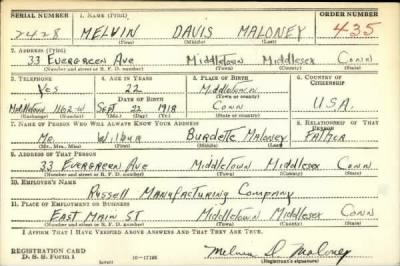 SERIAL NUMBER 1. NAME (Print) ORDER NUMBER
2428 MELVIN DAVIS MALONEY 435
(First) (Middle) (Last)
2. ADDRESS (Print)
33 EVERGREEN AVE MIDDLETOWN MIDDLESEX CONN
(Number and street or R. F. D. number) (Town) (County) (State)
3. TELEPHONE 4. AGE IN YEARS 5. PLACE OF BIRTH 6. COUNTRY OF CITIZENSHIP
Yes 22 Middletown
DATE OF BIRTH (Town or county)
Middletown 1162-W Sept 22 1918 CONN U.S.A.
(Exchange) (Number) (Mo.) (Day) (Yr.) (State or country)
7. NAME OF PERSON WHO WILL ALWAYS KNOW YOUR ADDRESS 8. RELATIONSHIP OF THAT PERSON
Mr. Wilbur Burdette Maloney FATHER
(Mr., Mrs., Miss) (First) (Middle) (Last)
9. ADDRESS OF THAT PERSON
33 EVERGREEN AVE MIDDLETOWN MIDDLESEX CONN
(Number and street or R. F. D. number) (Town) (County) (State)
10. EMPLOYER'S NAME
Russell Manufacturing Company
11. PLACE OF EMPLOYMENT OR BUSINESS
EAST MAIN ST MIDDLETOWN MIDDLESEX CONN
(Number and street or R. F. D. number) (Town) (County) (State)
I AFFIRM THAT I HAVE VERIFIED ABOVE ANSWERS AND THAT THEY ARE TRUE.
REGISTRATION CARD
D. S. S. Form 1 16-17105 Melvin D. Maloney
(Registrant's signature)